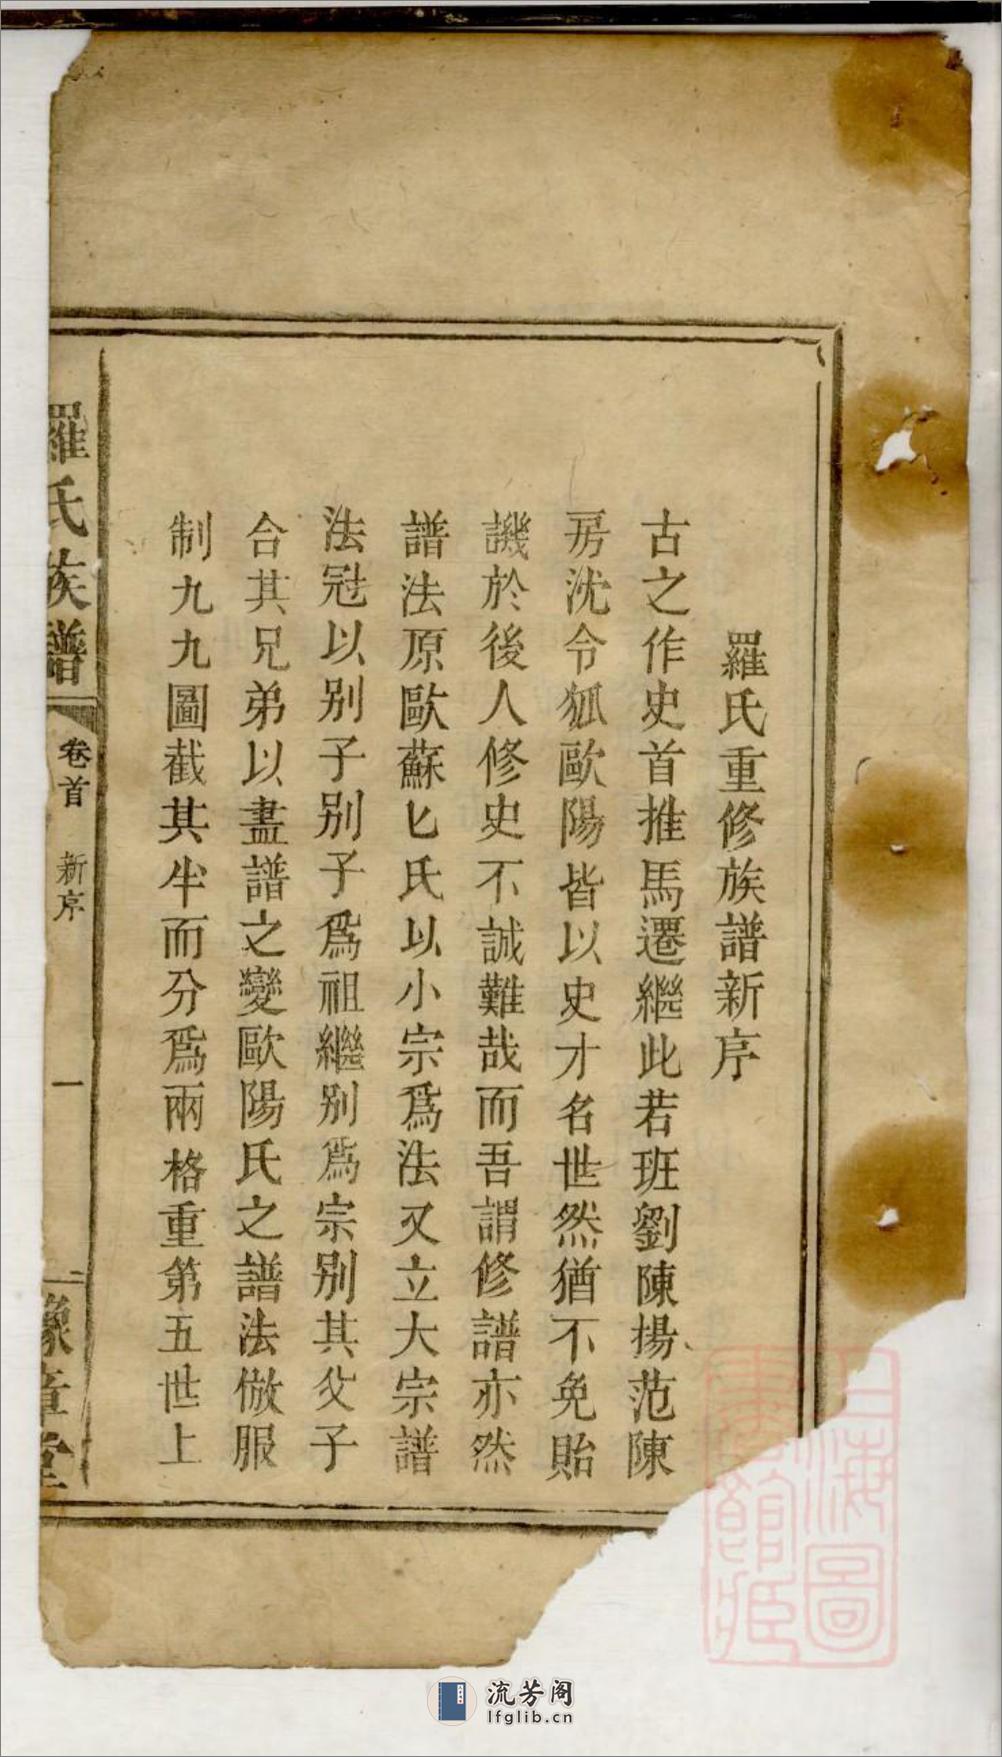 羅氏重修族譜新序
古之作史首推馬遷繼此若班劉陳揚范陳
房沈令狐歐陽皆以史才名世然猶不免貽
譏於後人修史不誠難哉而吾謂修譜亦然
譜法原歐蘇匕氏以小宗爲法又立大宗譜
法冠以别子别子爲祖繼别爲宗别其父子
合其兄弟以盡譜之變歐陽氏之譜法倣服
制九九圖截其半而分爲兩格重第五世上
羅氏族譜
卷首
新序
一
豫章堂
上海圖
書館藏
流芳阁
lfglib.cn